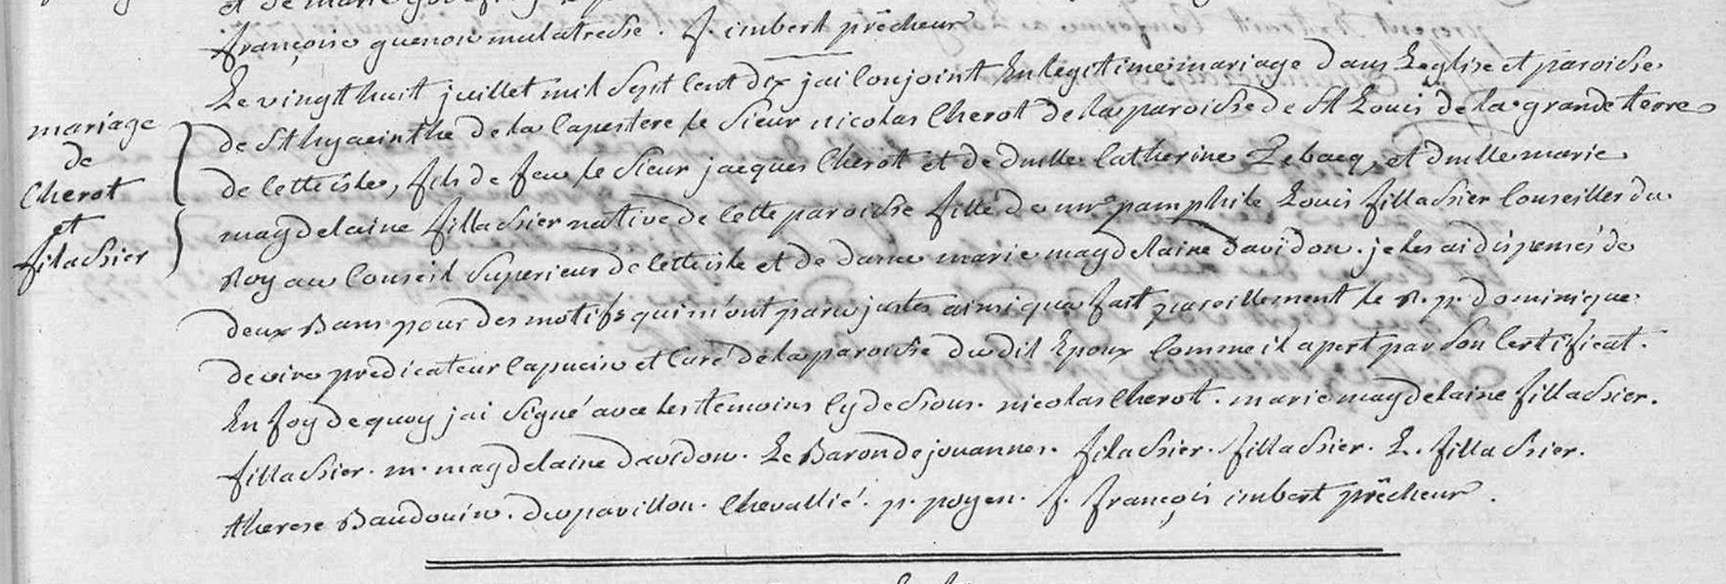 françoise guenon mulatresse. f. imbert prêcheur
mariage
de
Cherot
et
filassier
Le vingt huit juillet mil sept cent dix jai conjoint En legitime mariage dans Leglise et paroisse
de St hyacinthe de la Capestere le Sieur nicolas Cherot de la paroisse de St Louis de la grande terre
de cette isle, fils de feu le Sieur jacques Cherot et de dlle Catherine Lebacq, et dlle marie
magdelaine fillassier native de cette paroisse fille de mr pamphile Louis fillassier Conseiller du
Roy au Conseil Superieur de cette isle et de dame marie magdelaine davidon. je les ai dispensés de
deux Bans pour des motifs qui m'ont paru justes ainsi qua fait pareillement le R. p. dominique
de vire predicateur capucin et Curé de la paroisse du dit Epoux Comme il apert par Son Certificat.
En foy de quoy jai Signé avec les temoins Cy dessous. nicolas Cherot. marie magdelaine fillassier.
fillassier. m. magdelaine davidon. Le Baron de jouannes. filassier. fillassier. L. fillassier.
therese Baudouin. du pavillon. Chevallié. p. poyen. f. françois imbert prêcheur.